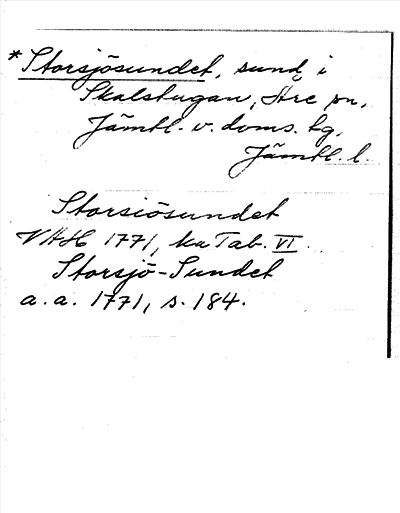 *Storsjösundet, sund, i
Skalstugan, Åre sn,
Jämtl. v. doms. tg,
Jämtl. l.
Storsiösundet
VAH 1771, ka Tab. VI.
Storsjö-Sundet
a. a. 1771, s. 184.